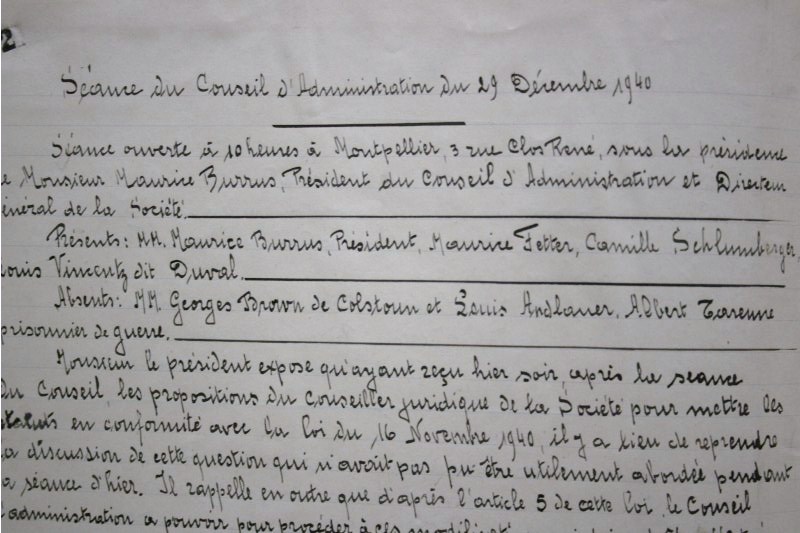 2
Séance du Conseil d'Administration du 29 Décembre 1940
Séance ouverte à 10 heures à Montpellier, 3 rue Clos René, sous la présidence
e Monsieur Maurice Burrus, Président du Conseil d'Administration et Directeur
énéral de la Société.
Présents: MM. Maurice Burrus, Président, Maurice Fetter, Camille Schlumberger,
ouis Vincentz dit Duval.
Absents: MM. Georges Brown de Colstoun et Louis Andlauer, Albert Tarenne
prisonnier de guerre.
Monsieur le président expose qu'ayant reçu hier soir, après la séance
du Conseil, les propositions du Conseiller juridique de la Société pour mettre les
statuts en conformité avec la loi du 16 Novembre 1940, il y a lieu de reprendre
la discussion de cette question qui n'avait pas pu être utilement abordée pendant
la séance d'hier. Il rappelle en outre que d'après l'article 5 de cette loi le Conseil
d'administration a pouvoir pour procéder à ces